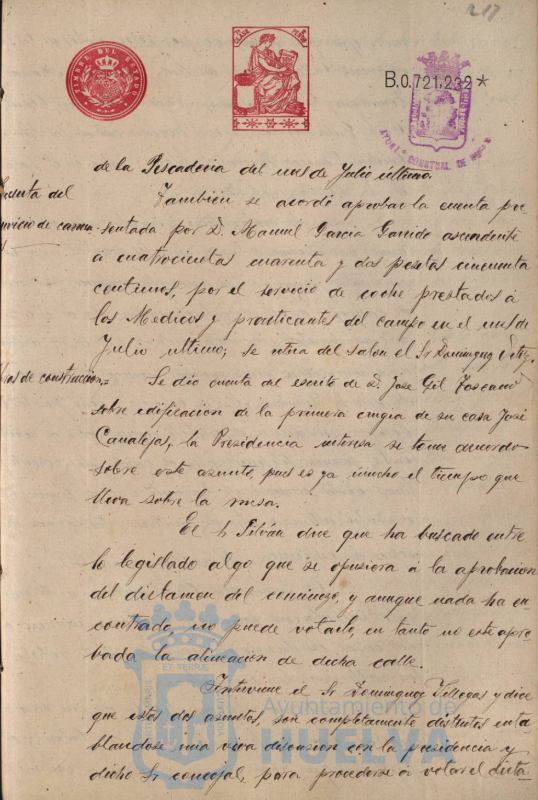 217
TIMBRE DEL ESTADO
B.0.721.232*
de la Pescaderia del mes de Julio ultimo.
Cuenta del
servicio de carrua-
s
Tambien se acordó aprobar la cuenta pre
sentada por D. Manuel Garcia Garrido ascendente
a cuatrocientas cuarenta y dos pesetas cincuenta
centimos, por el servicio de coche prestados á
los Medicos y practicantes del campo en el mes de
Julio ultimo; se retira del salon el Sr Dominguez
bras de construccion=
Se dio cuenta del escrito de D. Jose Gil Toscano
sobre edificacion de la primera crugia de su casa José
Canalejas, la Presidencia interesa se tome acuerdo
sobre este asunto, pues es ya mucho el tiempo que
lleva sobre la mesa.
El Sr dice que ha buscado entre
lo legislado algo que se opusiera á la aprobacion
del dictamen del, y aunque nada ha en
contrado, no puede votarlo, en tanto no este apro
bada la alineacion de dicha calle.
Interviene el Sr Dominguez Villegas y dice
que estos dos asuntos, son completamente distintos enta
blandose una viva discusion con la presidencia y
dicho Sr concejal, para procederse á votar el dicta-
Ayuntamiento de
HUELVA